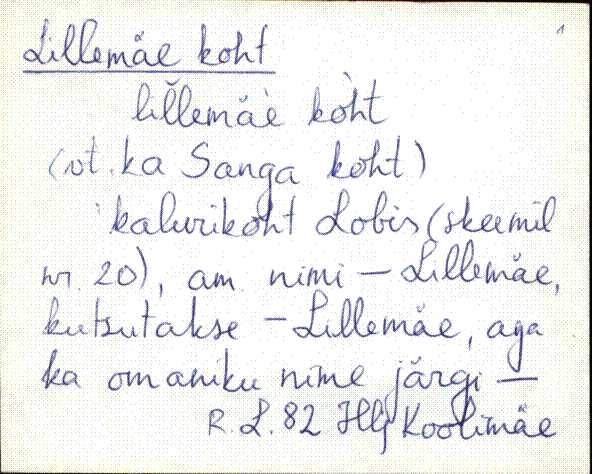 1
Lillemäe koht
lĭllemäè kòht
(vt. ka Sanga koht)
kalurikoht Lobis (skeemil
nr. 20), am. nimi – Lillemäe,
kutsutakse – Lillemäe, aga
ka omaniku nime järgi –
R. L. 82 Koolimäe